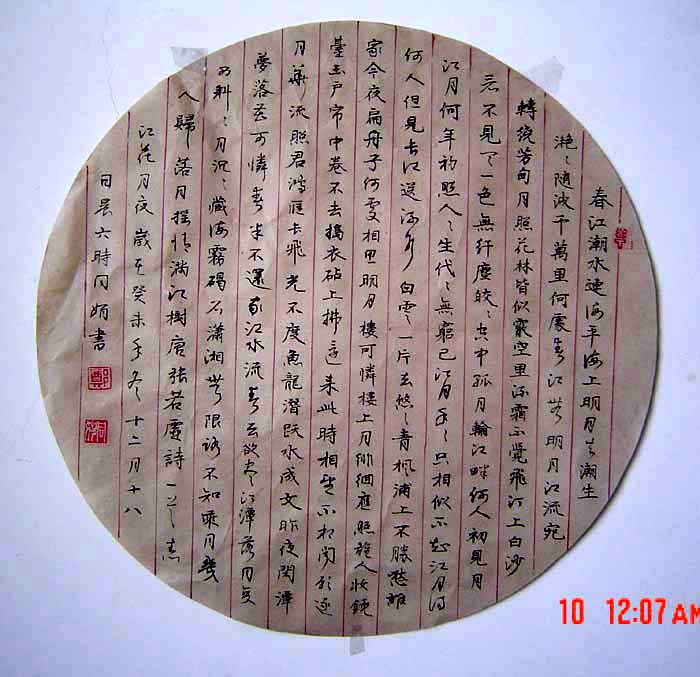 春江潮水連海平海上明月共潮生
灧〻隨波千萬里何處春江無明月江流宛
轉繞芳甸月照花林皆似霰空里流霜不覺飛汀上白沙
看不見一色無纤塵皎〻空中孤月輪江畔何人初見月
江月何年初照人〻生代〻無窮已江月年〻只相似不知江月待
何人但見长江送流水白雲一片去悠〻青楓浦上不勝愁誰
家今夜扁舟子何處相思明月樓可憐樓上月徘徊應照離人妝鏡
臺玉戶帘中卷不去搗衣砧上拂還来此時相望不相聞願逐
月華流照君鴻雁长飛光不度魚龍潛跃水成文昨夜閑潭
夢落花可憐春半不還家江水流春去欲尽江潭落月复
西斜〻月沉〻藏海霧碣石瀟湘無限路不知乘月幾
人歸落月摇情滿江樹唐張若虛詩一首春
江花月夜歲在癸未年冬十二月十八
日晨六時同娟書
鄭
10 12:07 AM